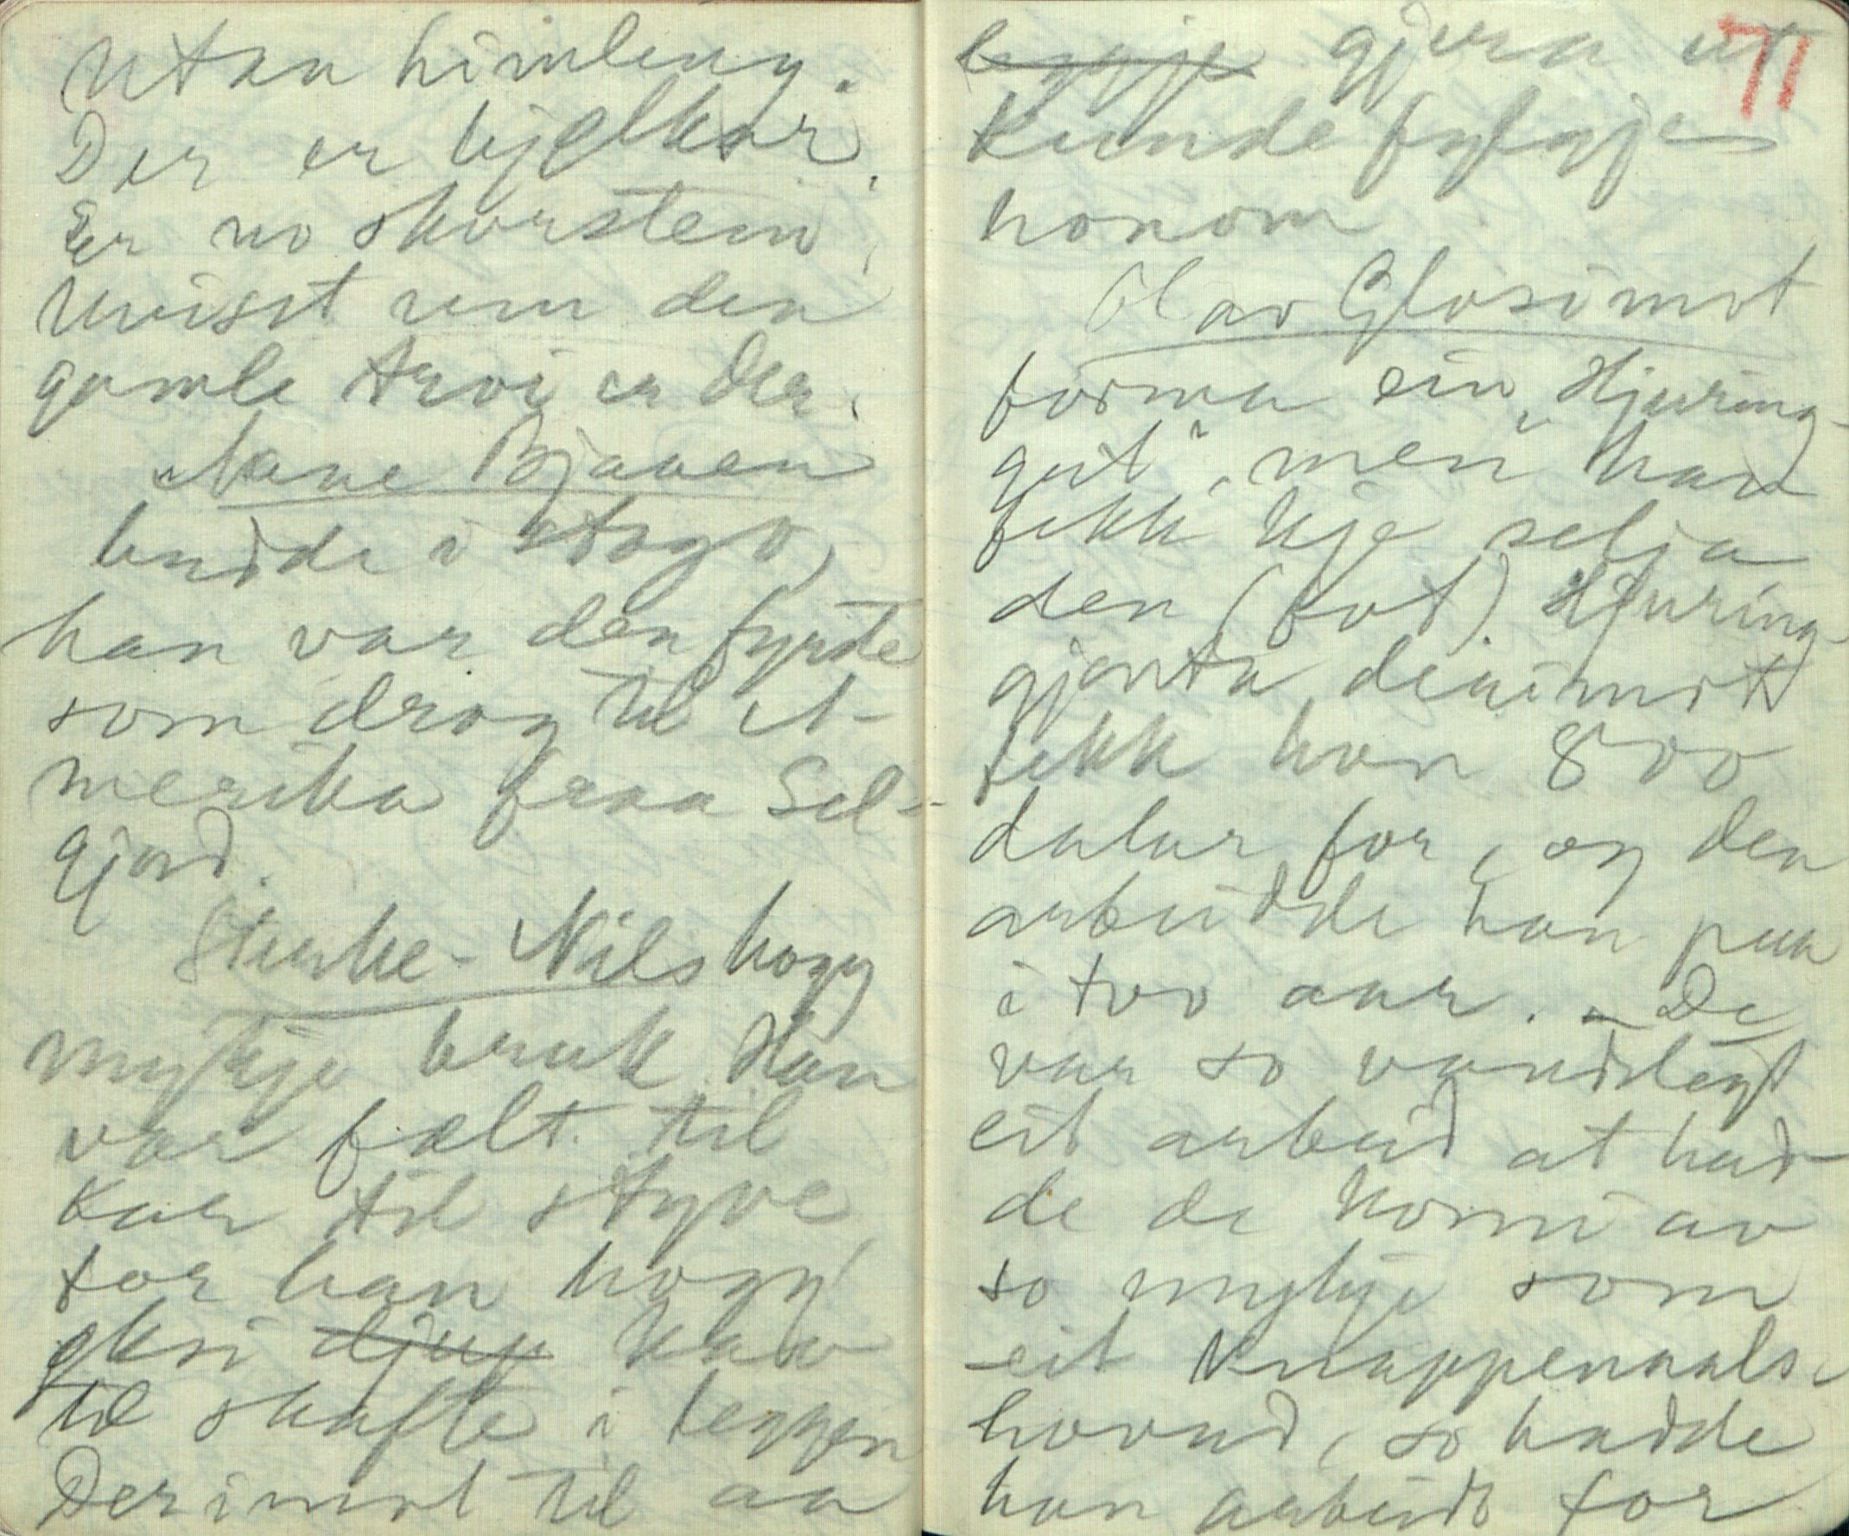 utan himling.
Der er bjelkar.
Er no skorstein,
uvisst um den
gamle arovi er der.
Aane Bjaaen
budde i Stogo,
han var den fyrste
som drog til A-
merika fraa Sel-
gjord.
Sterke-Nils hogg
mykje bruk. Han
var fælt til
kar til styve,
for han hogg
øksi djup kaw
til skafte i leggen
Derimot til aa
leggje gjera ut
71
kunde fylgje
honom
Olav Glosimot
forma ein "Hjuring-
gut", men han
fekk kje selja
den (fot). Hjuring-
gjenta derimot
fekk han 800
dalar for, og den
arbeidde han paa
i tvo aar. - De
var so vandslegt
eit arbeid at had-
de de komi av
so mykje som
eit knappenaals-
hovud, so hadde
han arbeidt for